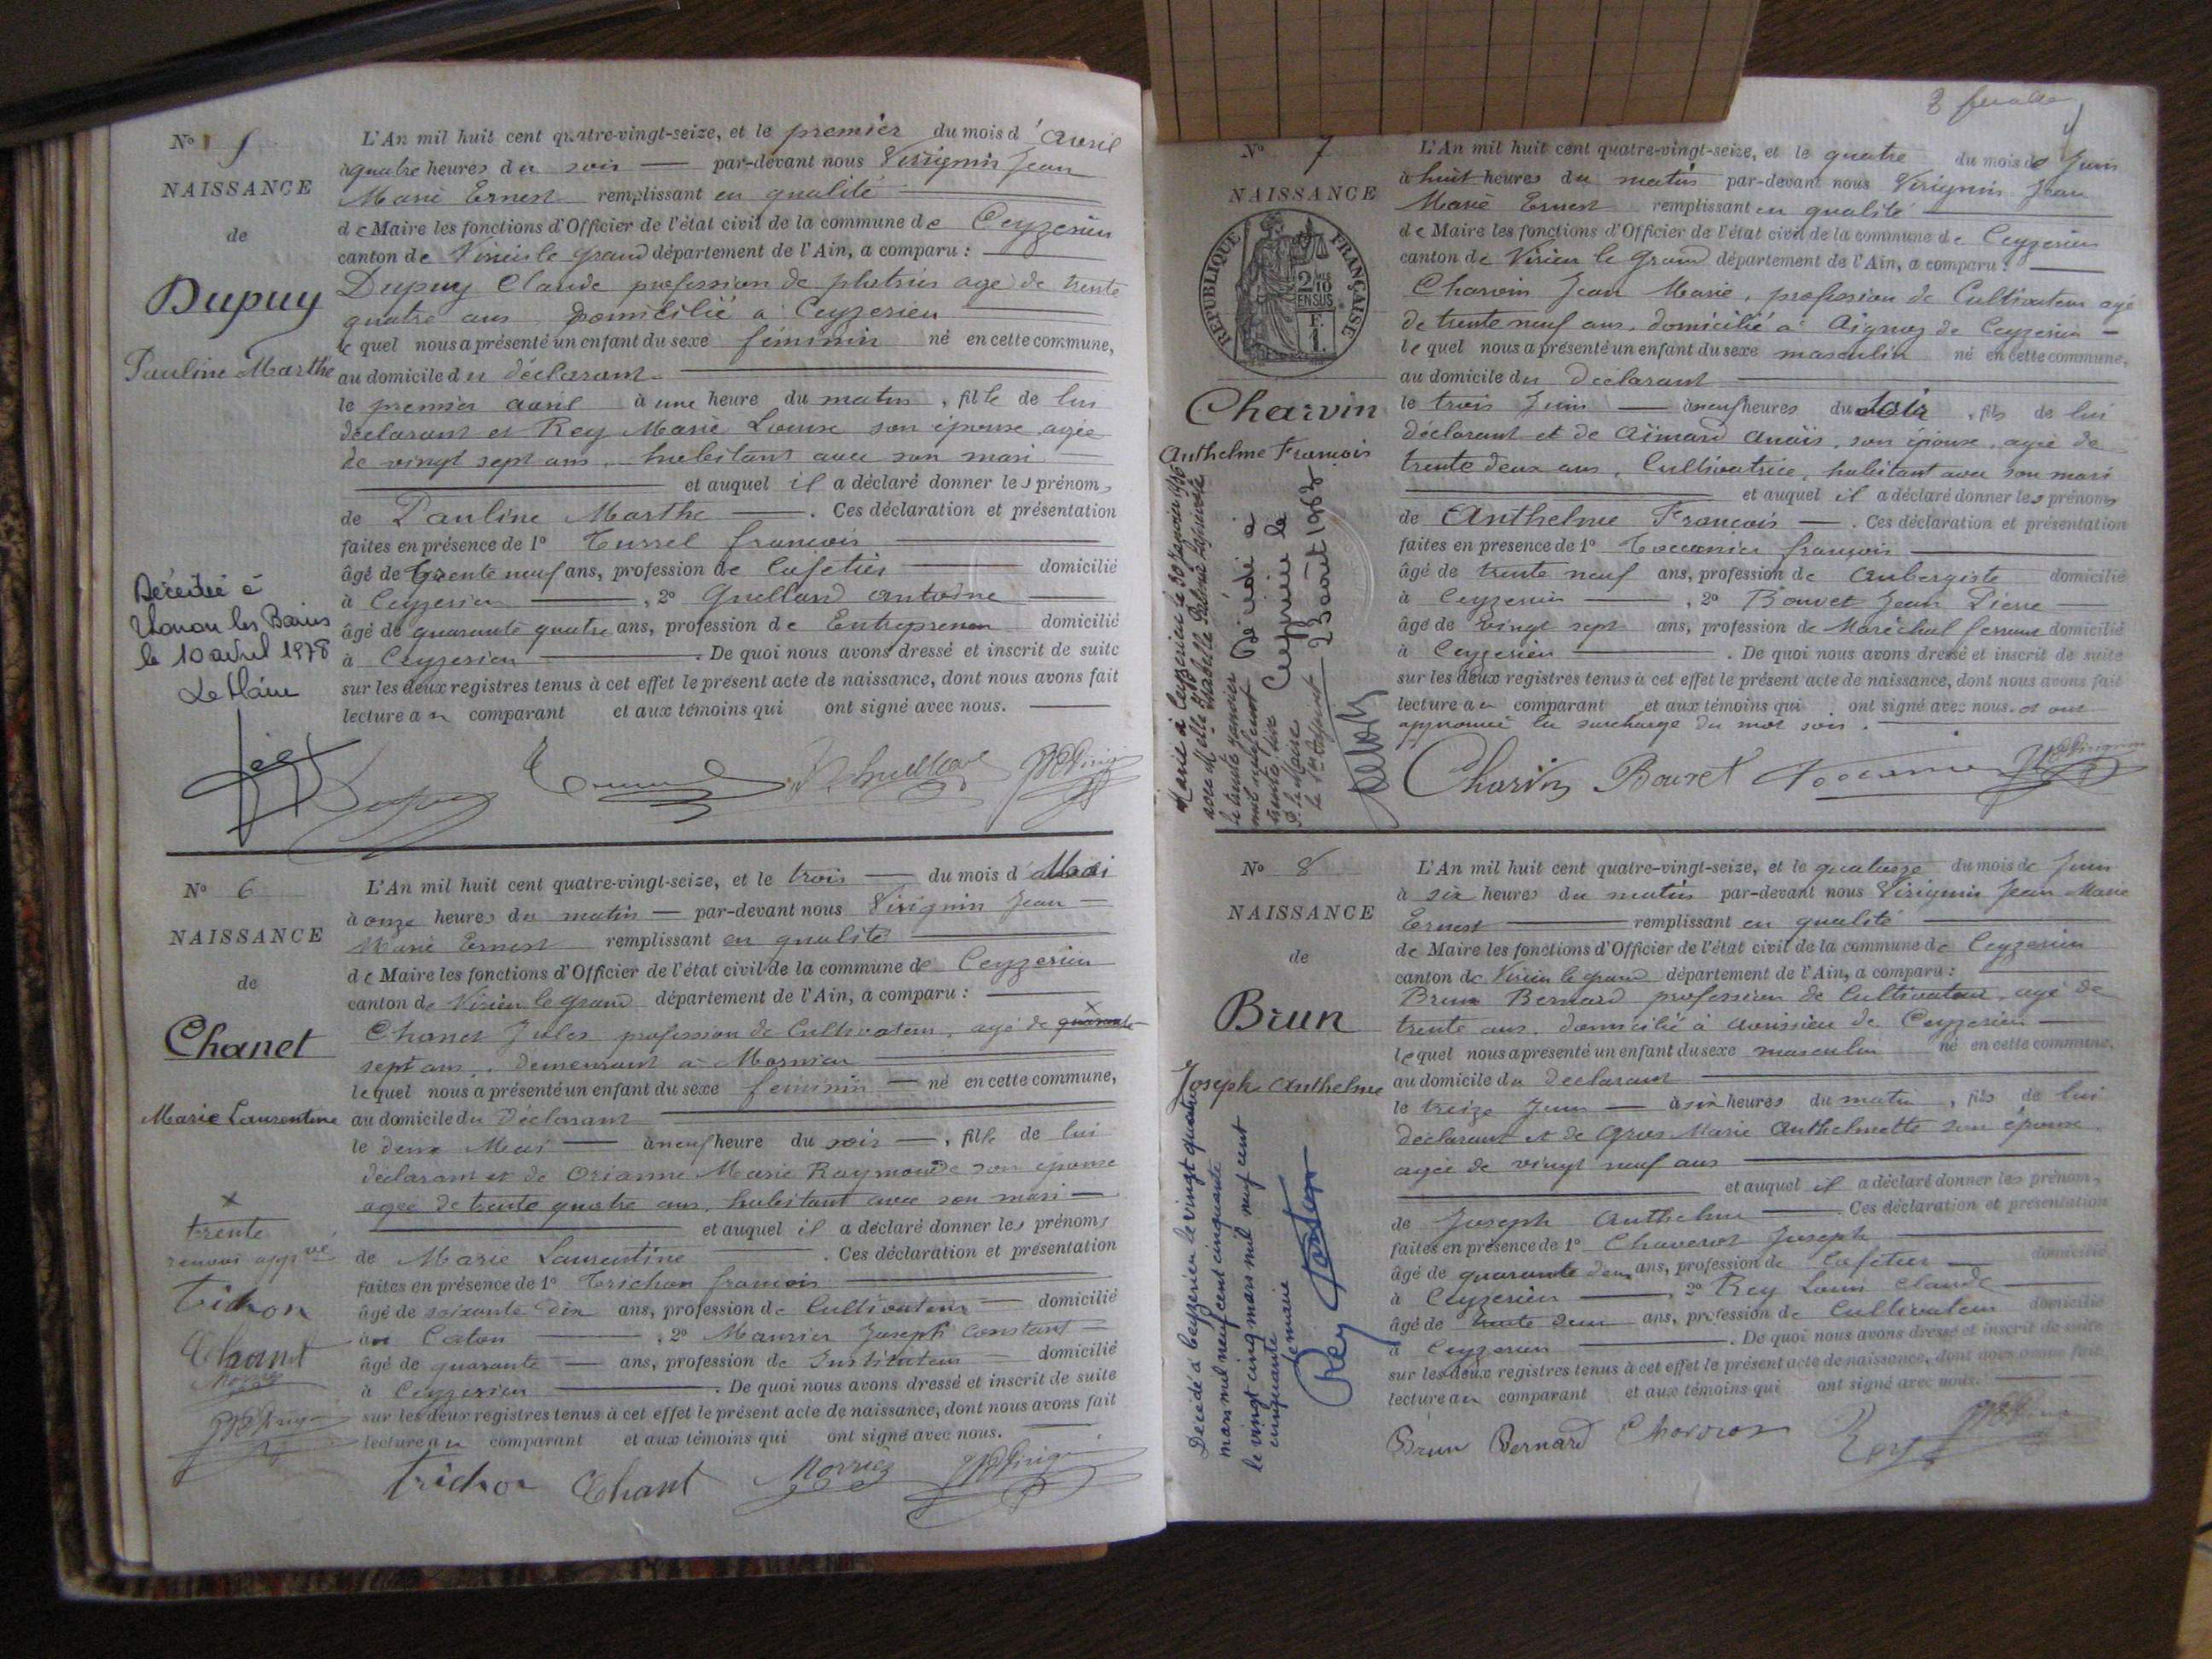 N° 5
NAISSANCE
de
Dupuy
Pauline Marthe
Décédée à
Thonon les Bains
le 10 avril 1978
Le Maire
L'An mil huit cent quatre-vingt-seize, et le premier du mois d'avril
à quatre heures du soir — par-devant nous Virignin Jean
Marie Ernest remplissant en qualité
de Maire les fonctions d'Officier de l'état civil de la commune de Ceyzerieu
canton de Virieu le grand département de l'Ain, a comparu :
Dupuy Claude profession de platrier agé de trente
quatre ans domicilié à Ceyzerieu
lequel nous a présenté un enfant du sexe féminin né en cette commune,
au domicile du déclarant
le premier avril à une heure du matin, fille de lui
déclarant et Rey Marie Louise son épouse agée
de vingt sept ans, habitant avec son mari
et auquel il a déclaré donner les prénoms
de Pauline Marthe — . Ces déclaration et présentation
faites en présence de 1° françois
âgé de trente neuf ans, profession de Cafetier domicilié
à Ceyzerieu — , 2° antoine
âgé de quarante quatre ans, profession de Entrepreneur domicilié
à Ceyzerieu — . De quoi nous avons dressé et inscrit de suite
sur les deux registres tenus à cet effet le présent acte de naissance, dont nous avons fait
lecture au comparant et aux témoins qui ont signé avec nous.
N° 6
NAISSANCE
de
Chanet
Marie Laurentine
x
trente
renvoi appvé
Trichon
Chanet
L'An mil huit cent quatre-vingt-seize, et le trois — du mois d Mai
à onze heures du matin — par-devant nous Virignin Jean
Marie Ernest remplissant en qualité
de Maire les fonctions d'Officier de l'état civil de la commune de Ceyzerieu
canton de Virieu le grand département de l'Ain, a comparu :
Chanet Jules profession de Cultivateur, agé de quarante x
sept ans, demeurant à Mornieu
lequel nous a présenté un enfant du sexe feminin — né en cette commune,
au domicile du Déclarant
le deux Mai — à neuf heure du soir —, fille de lui
déclarant et de Orianne Marie Raymonde son épouse
agée de trente quatre ans, habitant avec son mari —
et auquel il a déclaré donner les prénoms
de Marie Laurentine — . Ces déclaration et présentation
faites en présence de 1° Trichon françois
âgé de soixante dix ans, profession de Cultivateur — domicilié
à Caton — , 2° Joseph Constant
âgé de quarante — ans, profession de Instituteur — domicilié
à Ceyzerieu — . De quoi nous avons dressé et inscrit de suite
sur les deux registres tenus à cet effet le présent acte de naissance, dont nous avons fait
lecture au comparant et aux témoins qui ont signé avec nous.
Trichon Chanet
N° 7
NAISSANCE
REPUBLIQUE FRANÇAISE
2/10 EN SUS
Charvin
Anthelme François
Marié à Ceyzerieu le 30 janvier 1936
le trente janvier
mil neuf cent
trente six
P. le Maire
Décédé à
Ceyzerieu le
23 août 1962
L'An mil huit cent quatre-vingt-seize, et le quatre du mois de Juin
à huit heures du matin par-devant nous Virignin Jean
Marie Ernest remplissant en qualité
de Maire les fonctions d'Officier de l'état civil de la commune de Ceyzerieu
canton de Virieu le Grand département de l'Ain, a comparu :
Charvin Jean Marie, profession de Cultivateur agé
de trente neuf ans, domicilié à Aignoz de Ceyzerieu —
lequel nous a présenté un enfant du sexe masculin né en cette commune,
au domicile du Déclarant
le trois Juin — à neuf heures du soir, fils de lui
déclarant et de Aimard Anaïs, son épouse, agée de
trente deux ans, Cultivatrice, habitant avec son mari
et auquel il a déclaré donner les prénoms
de Anthelme François — . Ces déclaration et présentation
faites en présence de 1° françois
âgé de trente neuf ans, profession de Aubergiste domicilié
à Ceyzerieu — , 2° Bouvet Jean Pierre —
âgé de vingt sept ans, profession de Maréchal ferrant domicilié
à Ceyzerieu — . De quoi nous avons dressé et inscrit de suite
sur les deux registres tenus à cet effet le présent acte de naissance, dont nous avons fait
lecture au comparant et aux témoins qui ont signé avec nous. et ont
approuvé la surcharge du mot soir.
Charvin Bouvet
N° 8
NAISSANCE
de
Brun
Joseph Anthelme
Décédé à Ceyzerieu le vingt quatre
mars mil neuf cent cinquante
le vingt cinq mars mil neuf cent
cinquante
Le maire
Rey
L'An mil huit cent quatre-vingt-seize, et le quatorze du mois de Juin
à six heures du matin par-devant nous Virignin Jean Marie
Ernest — remplissant en qualité
de Maire les fonctions d'Officier de l'état civil de la commune de Ceyzerieu
canton de Virieu le grand département de l'Ain, a comparu :
Brun Bernard profession de Cultivateur, agé de
trente ans, domicilié à Avrissieu de Ceyzerieu —
lequel nous a présenté un enfant du sexe masculin né en cette commune,
au domicile du Déclarant
le treize Juin — à six heures du matin, fils de lui
déclarant et de Gros Marie Anthelmette son épouse
agée de vingt neuf ans
et auquel il a déclaré donner les prénoms
de Joseph Anthelme — . Ces déclaration et présentation
faites en présence de 1° Joseph
âgé de quarante deux ans, profession de Cafetier — domicilié
à Ceyzerieu — , 2° Rey Louis Claude
âgé de trente deux ans, profession de Cultivateur domicilié
à Ceyzerieu — . De quoi nous avons dressé et inscrit de suite
sur les deux registres tenus à cet effet le présent acte de naissance, dont nous avons fait
lecture au comparant et aux témoins qui ont signé avec nous.
Brun Bernard Rey